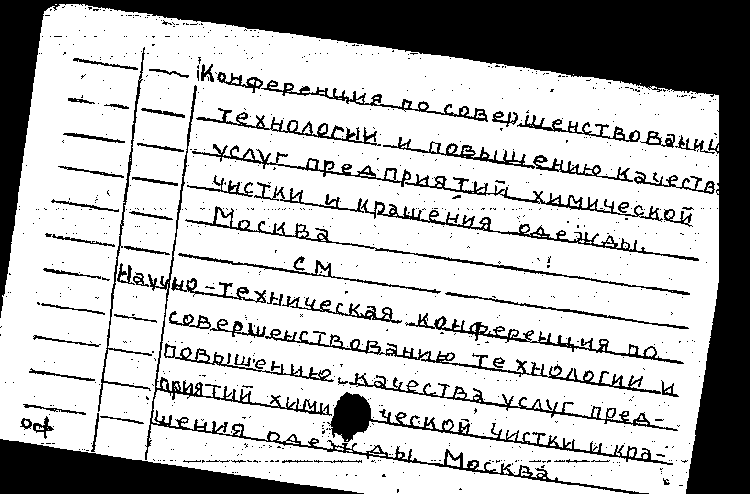 Конференция по совершенствованию
технологии и повышению качества
услуг предприятий химической
чистки и крашения одежды.
Москва
см
Научно-техническая конференция по
совершенствованию технологии и
повышению качества услуг пред-
приятий химической чистки и кра-
шения одежды. Москва.
оф